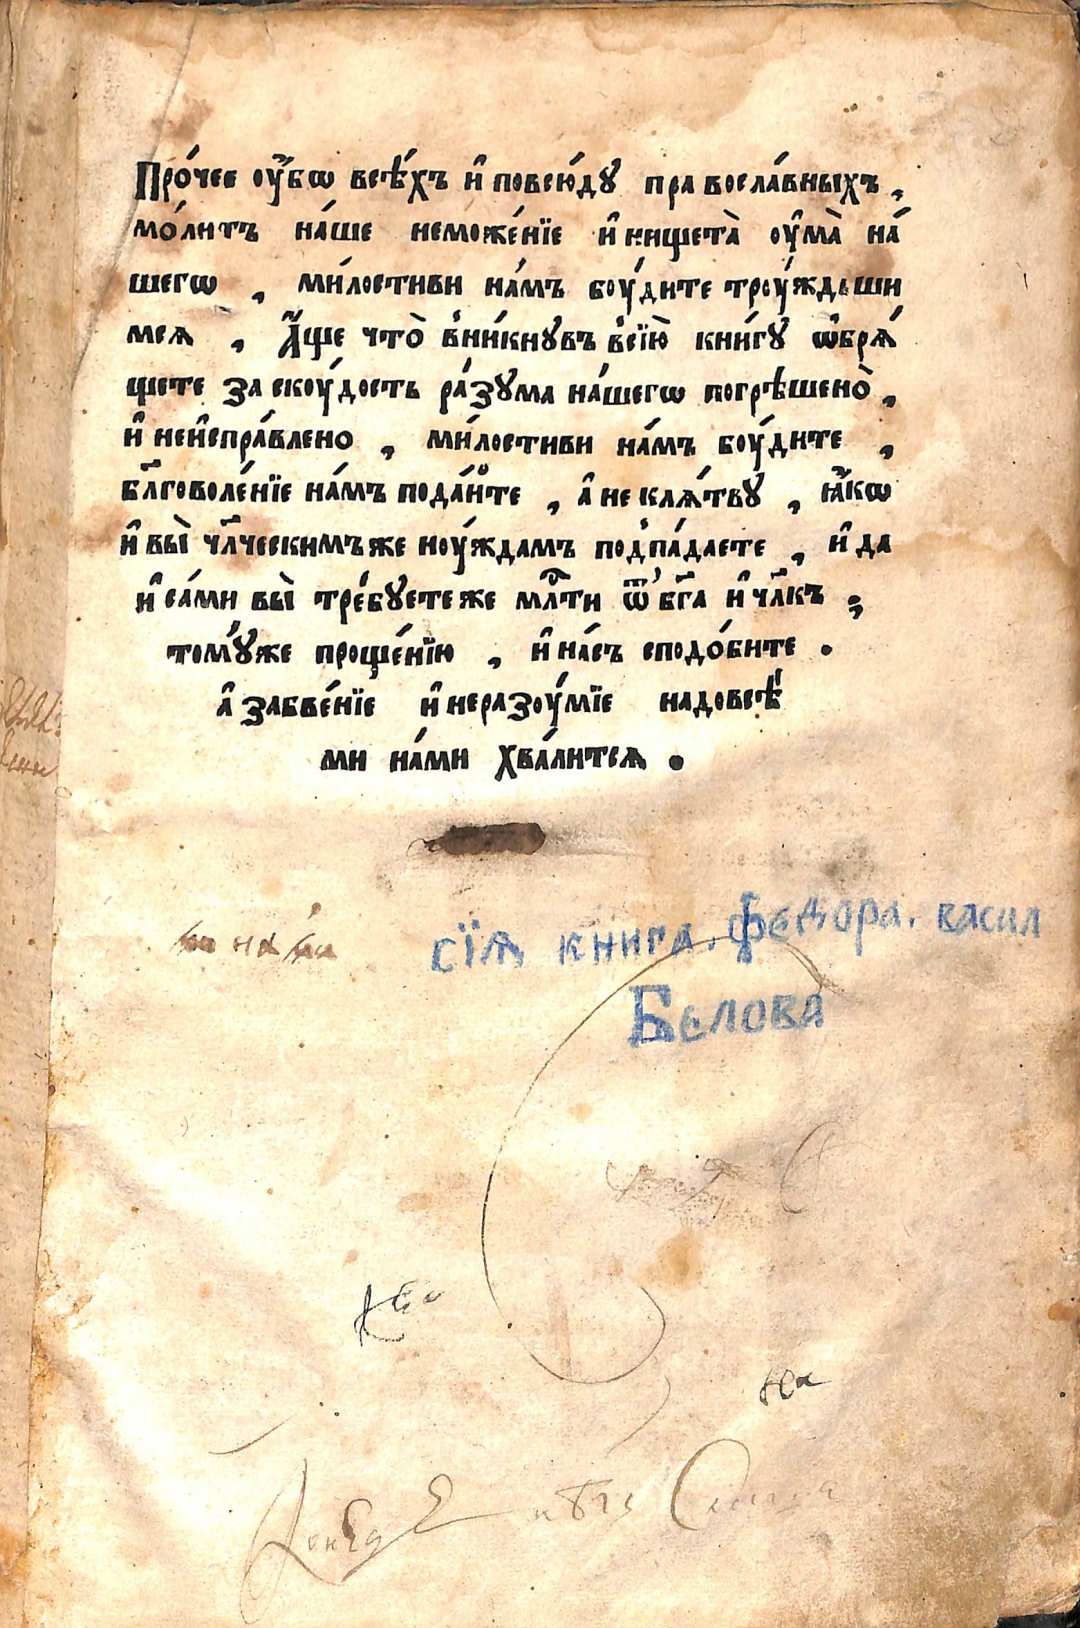 Про́чее ᲂу҆́бѡ всѣ́хъ и҆ повсю́дꙋ правосла́вныхъ ,
мо́литъ на́ше неможе́нїе и҆ нищета̀ ᲂу҆ма̀ на́
шегѡ , ми́лостиви на́мъ боу́дите троу́ждьши
мсѧ , А҆́ще что̀ в̾ни́кнꙋвъ в̾сїю̀ кни́гꙋ ѡ҆брѧ́
щете за скоу́дость ра́зꙋма на́шегѡ погрѣшено̀ ,
и҆ неи҆спра́влено , ми́лостиви на́мъ боу́дите ,
бл҃говоле́нїе на́мъ пода́йте , а҆ не клѧ́твꙋ , ꙗ҆́кѡ
и҆ вы̀ чл҃ческимъ же ноу́ждамъ под̾па́даете , и҆ да
и҆ са́ми вы̀ тре́бꙋете же мл҇ти ѿ бг҃а и҆ чл҃къ ;
томꙋ́же проще́нїю , и҆ на́съ сподо́бите .
а҆ забве́нїе и҆ неразоу́мїе надовсѣ́
ми на́ми хва́литсѧ .
сїѧ книга. федора. васил
Белова